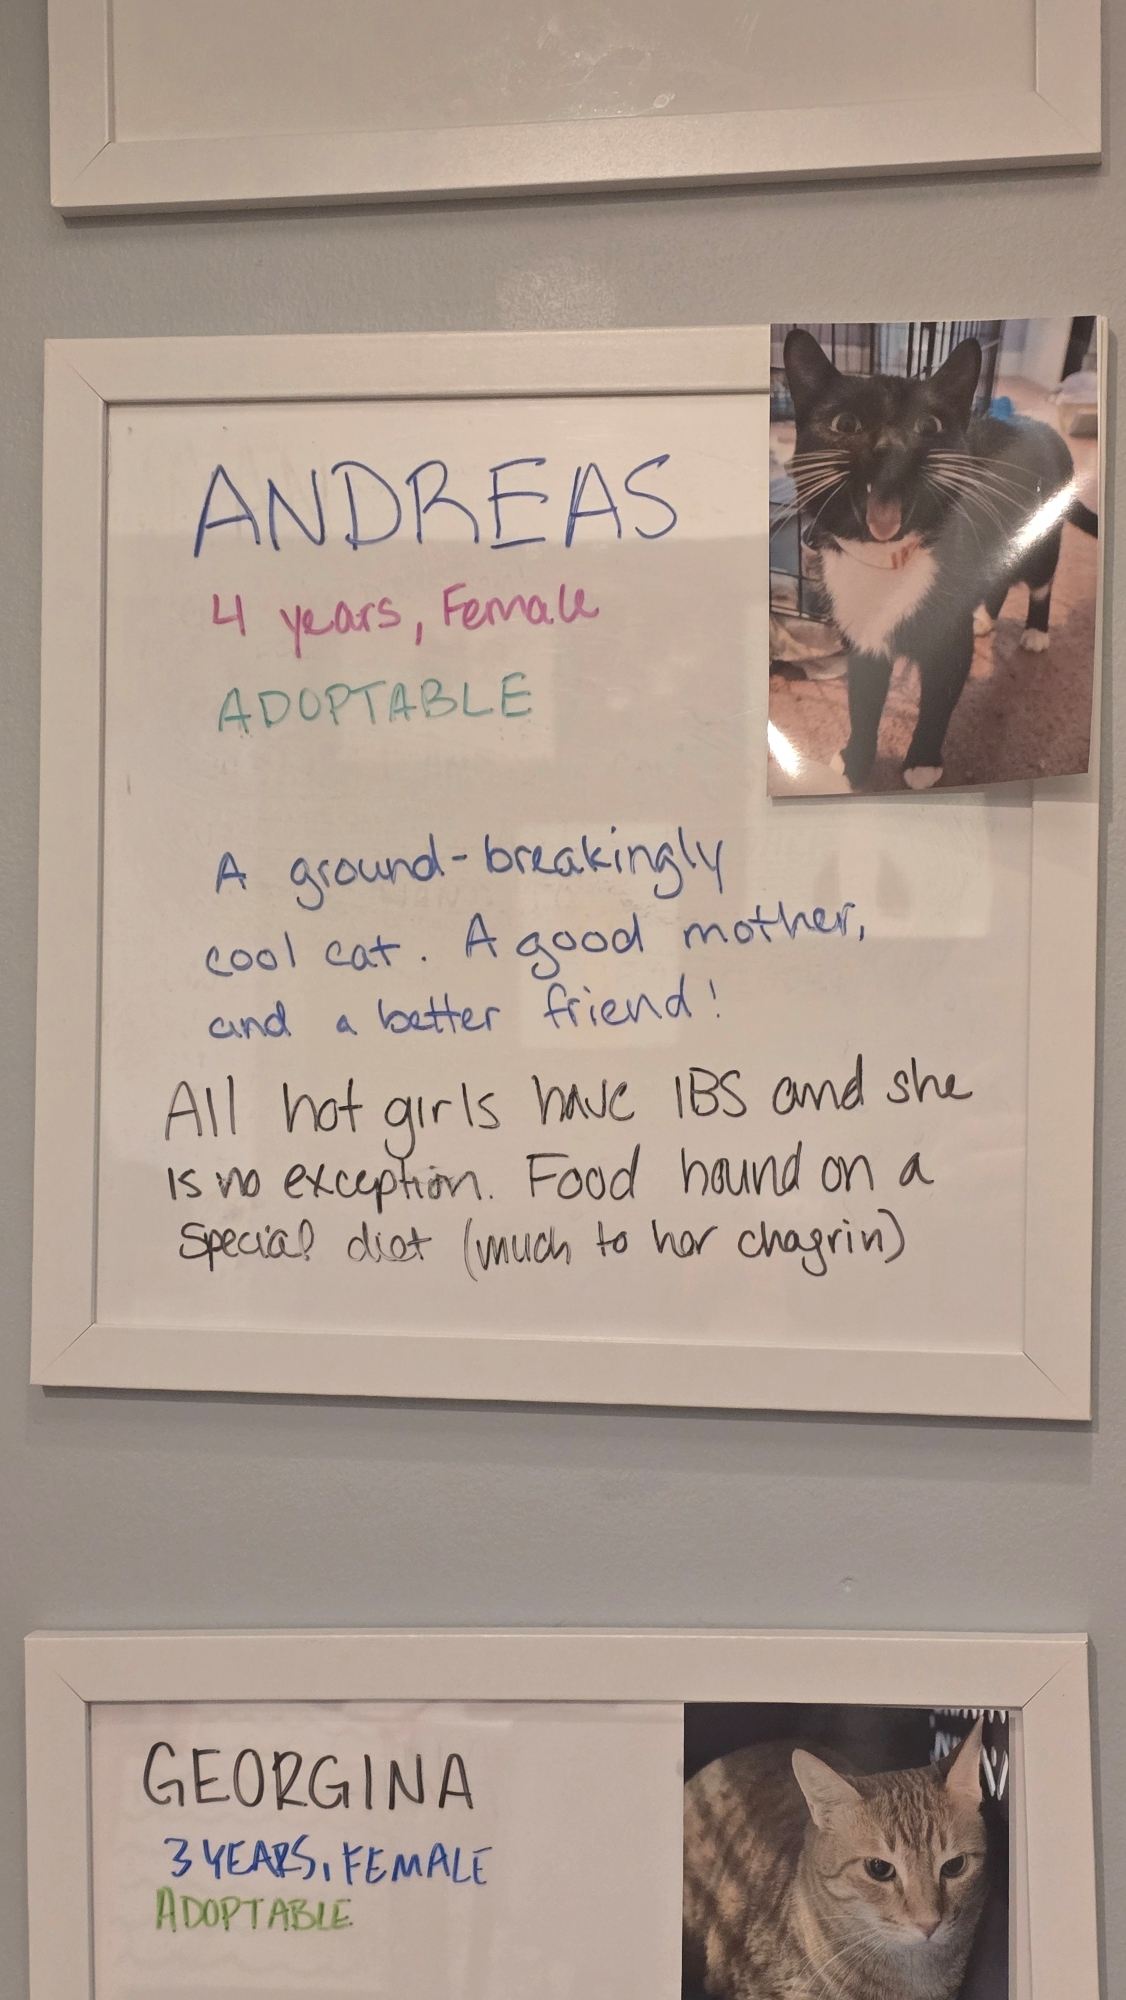 ANDREAS
4 years, Female
ADOPTABLE
A ground-breakingly
cool cat. A good mother,
and a better friend!
All hot girls have IBS and she
is no exception. Food hound on a
special diet (much to her chagrin)
GEORGINA
3 YEARS, FEMALE
ADOPTABLE